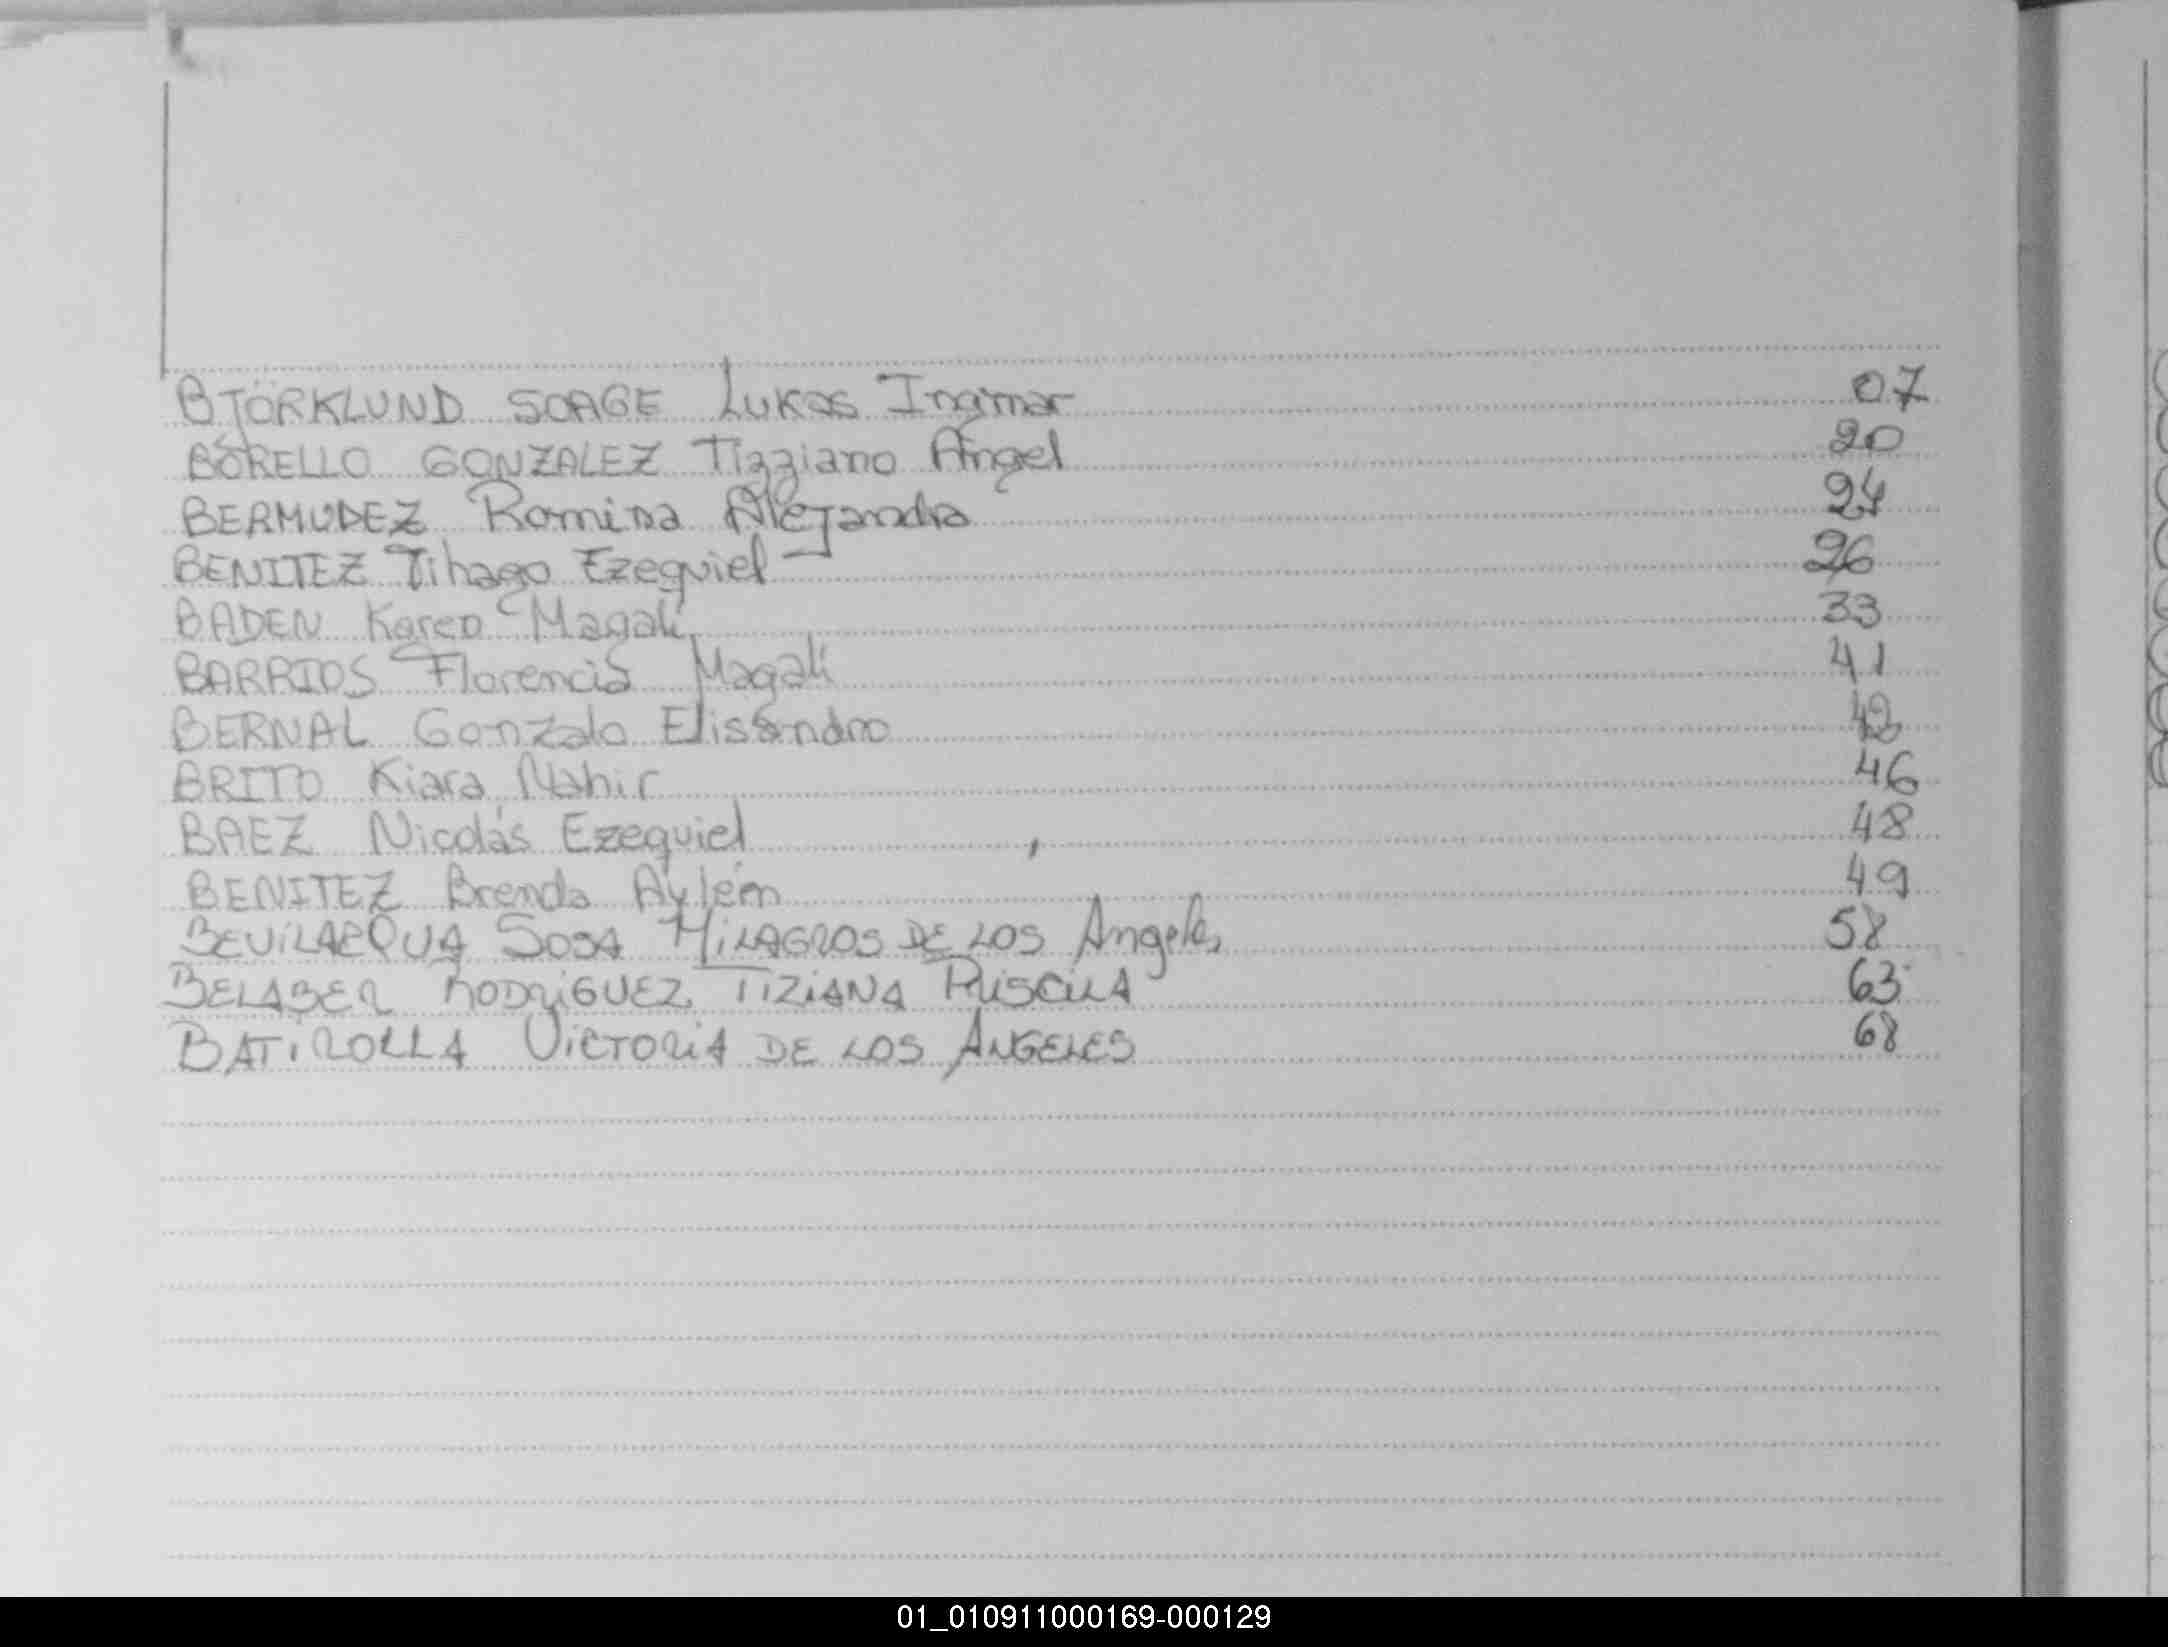 BJÖRKLUND SOAGE Lukas Ingmar 07
BORELLO GONZALEZ Tizziano Ángel 20
BERMUDEZ Romina Alejandra 24
BENITEZ Tihago Ezequiel 26
BADEN Karen Magalí 33
BARRIOS Florencia Magalí 41
BERNAL Gonzalo Elisandro
BRITO Kiara Nahir 46
BAEZ Nicolás Ezequiel 48
BENITEZ Brenda Aylén 49
BEVILACQUA SOSA MILAGROS DE LOS Angeles 58
BELABER RODRIGUEZ TIZIANA PRISCILA 63
BATIROLLA VICTORIA DE LOS ANGELES 68
01_010911000169-000129